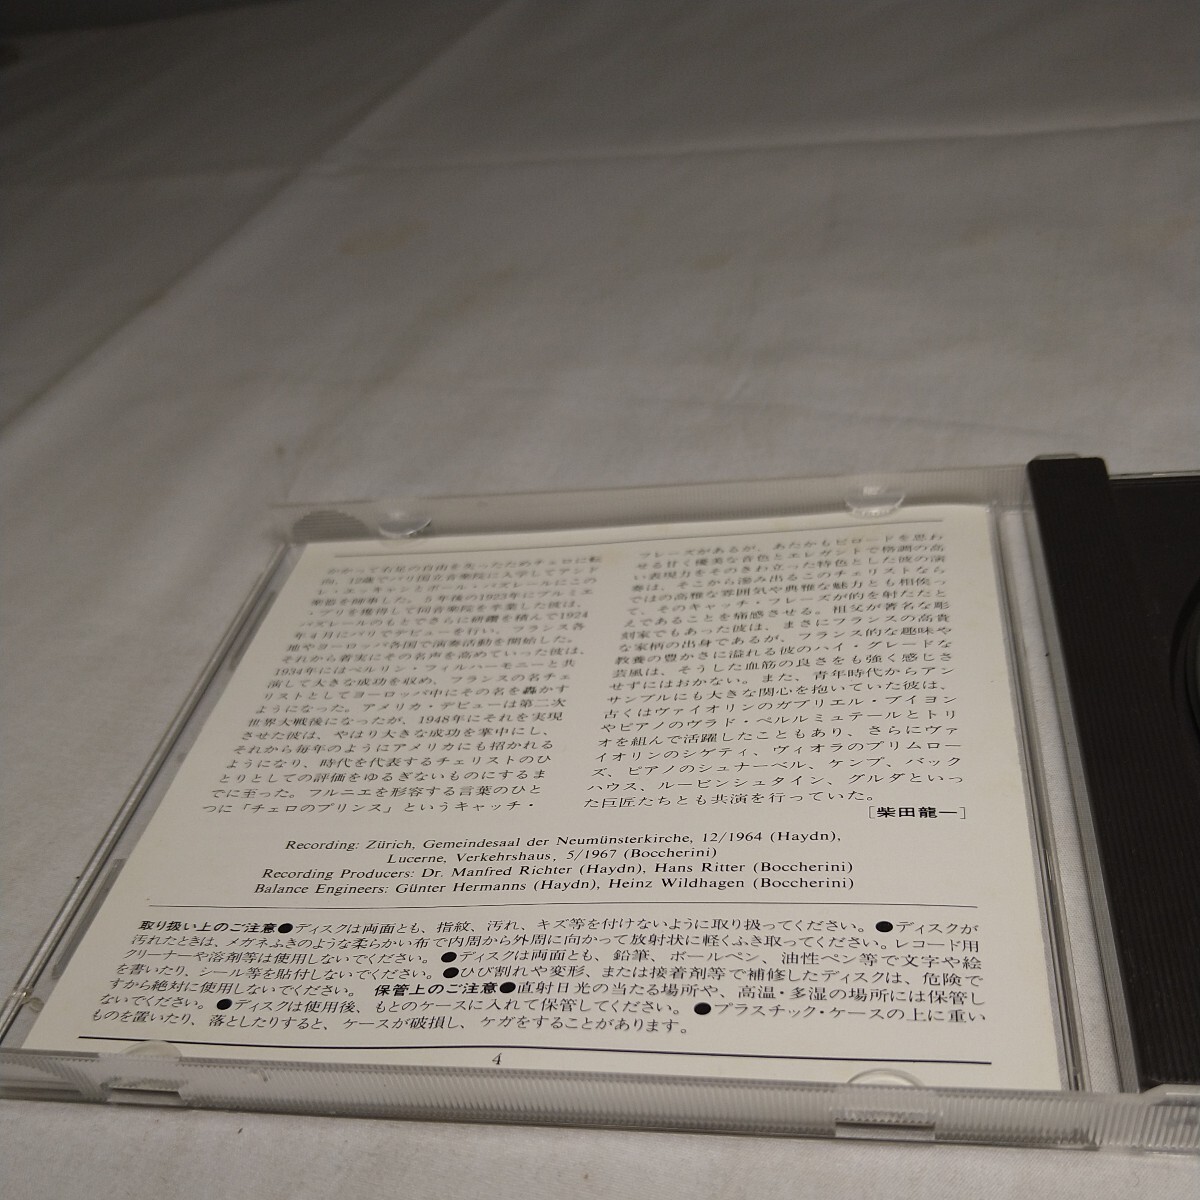 かかって右足の自由を失ったためチェロに転
向、12歳でパリ国立音楽院に入学してアンド
レ・エッキャンとポール・バズレールにこの
楽器を師事した。5年後の1923年にプルミエ
・プリを獲得して同音楽院を卒業した彼は、
バズレールのもとでさらに研鑽を積んで1924
年4月にパリでデビューを行い、フランス各
地やヨーロッパ各国で演奏活動を開始した。
それから着実にその名声を高めていった彼は、
1934年にはベルリン・フィルハーモニーと共
演して大きな成功を収め、フランスの名チェ
リストとしてヨーロッパ中にその名を轟かす
ようになった。アメリカ・デビューは第二次
世界大戦後になったが、1948年にそれを実現
させた彼は、やはり大きな成功を掌中にし、
それから毎年のようにアメリカにも招かれる
ようになり、時代を代表するチェリストのひ
とりとしての評価をゆるぎないものにするま
でに至った。フルニエを形容する言葉のひと
つに「チェロのプリンス」というキャッチ・
フレーズがあるが、あたかもビロードを思わ
せる甘く優美な音色とエレガントで格調の高
い表現力をそのきわ立った特色とした彼の演
奏は、そこから滲み出るこのチェリストなら
ではの高雅な雰囲気や典雅な魅力とも相俟っ
て、そのキャッチ・フレーズが的を射たたと
えであることを痛感させる。祖父が著名な彫
刻家でもあった彼は、まさにフランスの高貴
な家柄の出身であるが、フランス的な趣味や
教養の豊かさに溢れる彼のハイ・グレードな
芸風は、そうした血筋の良さをも強く感じさ
せずにはおかない。また、青年時代からアン
サンブルにも大きな関心を抱いていた彼は、
古くはヴァイオリンのガブリエル・ブイヨン
やピアノのヴラド・ペルルミュテールとトリ
オを組んで活躍したこともあり、さらにヴァ
イオリンのシゲティ、ヴィオラのプリムロー
ズ、ピアノのシュナーベル、ケンプ、バック
ハウス、ルービンシュタイン、グルダといっ
た巨匠たちとも共演を行っていた。
[柴田龍一]
Recording: Zürich, Gemeindesaal der Neumünsterkirche, 12/1964 (Haydn),
Lucerne, Verkehrshaus, 5/1967 (Boccherini)
Recording Producers: Dr. Manfred Richter (Haydn), Hans Ritter (Boccherini)
Balance Engineers: Günter Hermanns (Haydn), Heinz Wildhagen (Boccherini)
取り扱い上のご注意●ディスクは両面とも、指紋、汚れ、キズ等を付けないように取り扱ってください。●ディスクが
汚れたときは、メガネふきのような柔らかい布で内周から外周に向かって放射状に軽くふき取ってください。レコード用
クリーナーや溶剤等は使用しないでください。●ディスクは両面とも、鉛筆、ボールペン、油性ペン等で文字や絵
を書いたり、シール等を貼付しないでください。●ひび割れや変形、または接着剤等で補修したディスクは、危険で
すから絶対に使用しないでください。 保管上のご注意●直射日光の当たる場所や、高温・多湿の場所には保管し
ないでください。●ディスクは使用後、もとのケースに入れて保管してください。●プラスチック・ケースの上に重い
ものを置いたり、落としたりすると、ケースが破損し、ケガをすることがあります。
4